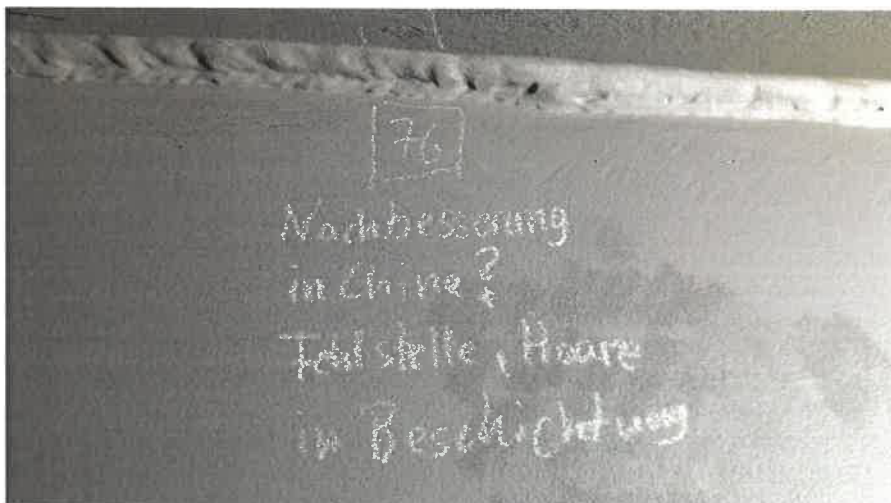 76
Nachbesserung
in China?
Fehlstelle, Haare
in Beschichtung